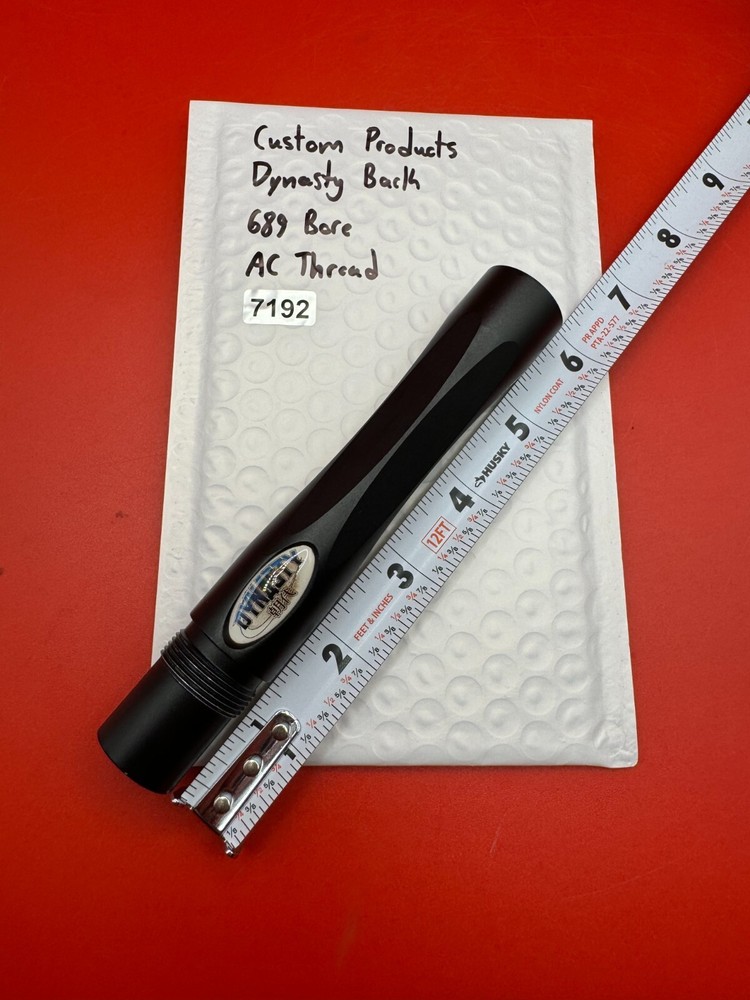 Custom Products
Dynasty Back
689 Bore
AC Thread
7192
DYNASTY
9
8
7
PR APPD
PTA-22-577
6
NYLON COAT
5
HUSKY
4
12FT
3
FEET & INCHES
2
1
1